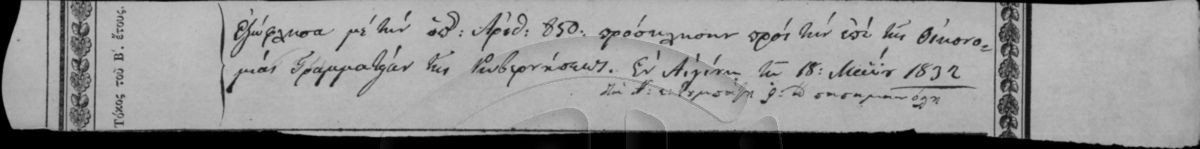 Τόκος τοῦ Β΄. ἔτους.
Ἐξώφλησα μὲ τὴν ὑπ: Ἀριθ: 850: πρόσκλησιν πρὸς τὴν ἐπὶ τῆς Οἰκονο-
μίας Γραμματείαν τῆς Κυβερνήσεως. Ἐν Αἰγίνῃ τῇ 18: Μαΐου 1832